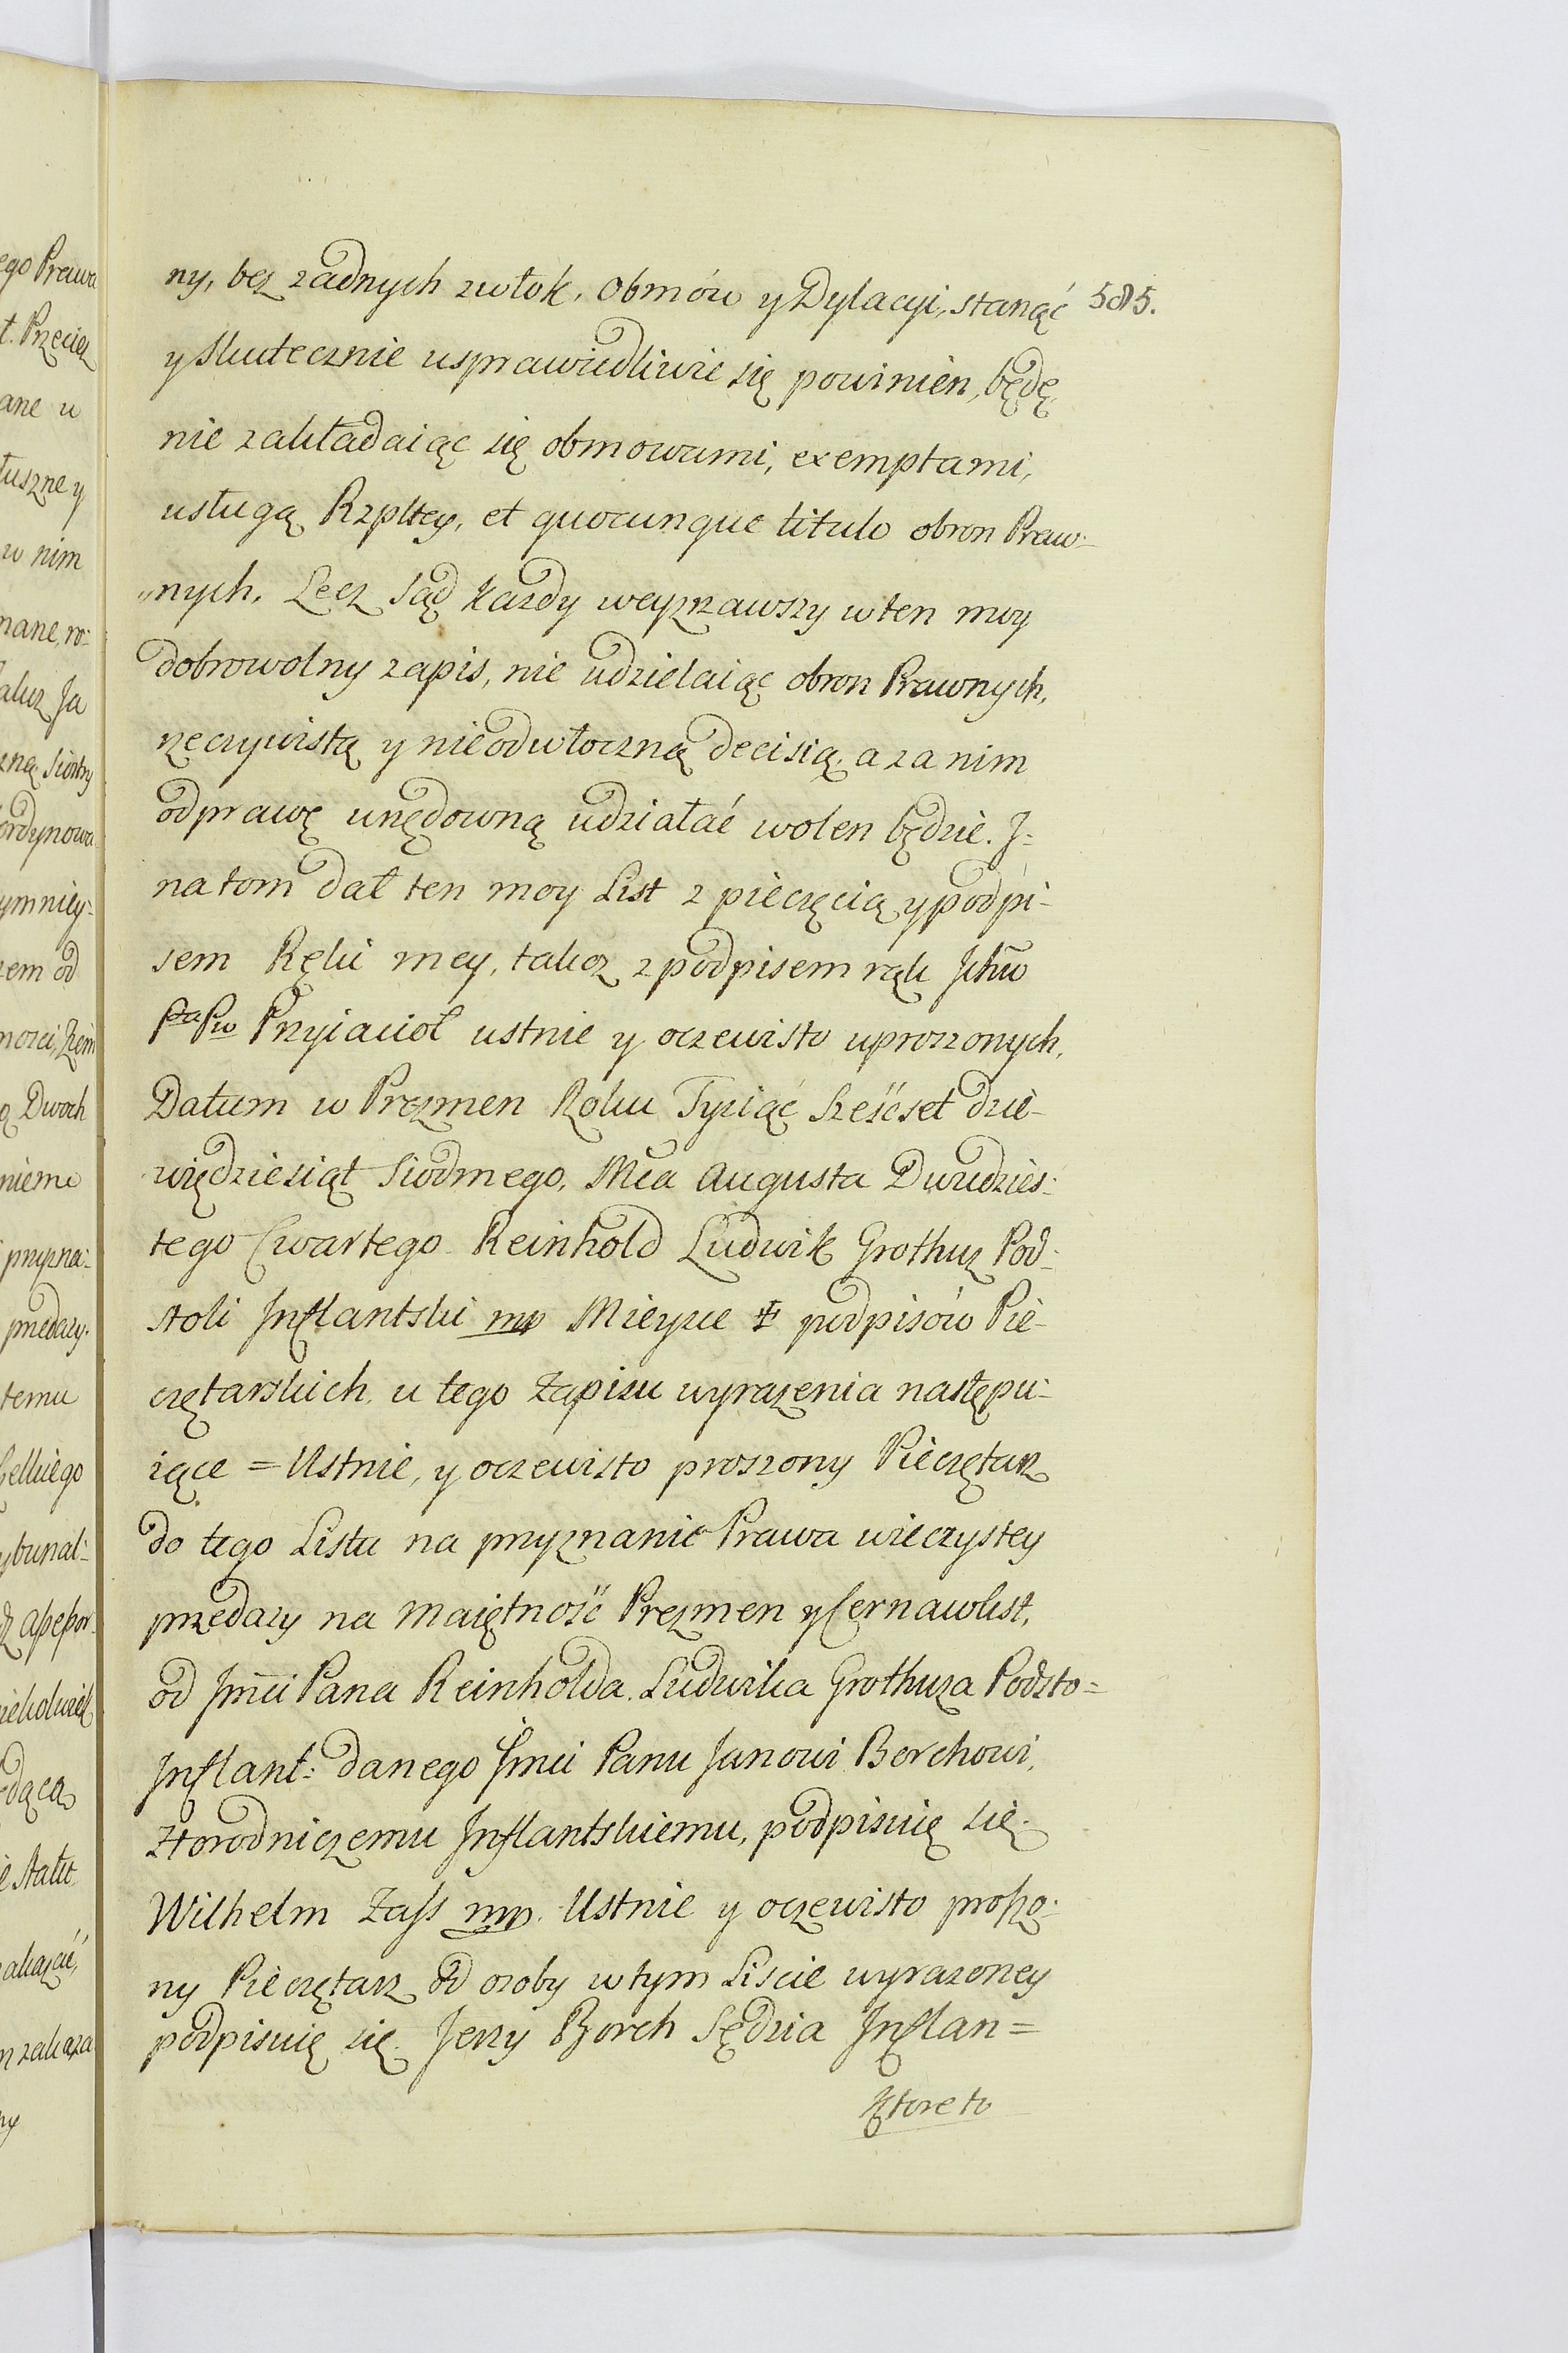 585.
ny, bez zadnych zwłok, Obmów y Dylacyi, stanąć
y skutecznie usprawiedliwić się powinien, będę,
nie zakładaiąc się obmowami, exemptami,
usługą Rzpltey, et quocunque titulo obron Praw-
„nych. Lecz Sąd każdy weyzrzawszy w ten moy
dobrowolny zapis, nie udzielaiąc obron Prawnych,
rzeczywistą y nieodwłoczną decisią, a za nim
odprawę urzędowną udziałać wolen będzie. J=
na tom dał ten moy List z pieczęcią y podpi-
sem Ręki mey, takoz z podpisem rąk Jchm̃
PaPw Przyiacioł ustnie y oczewisto uproszonych.
Datum w Prezmen Roku Tysiąć sześćset dzie-
więdziesiąt Siodmego, Mca Augusta Dwudzies-
tego Czwartego Reinhold Ludwik Grothuz Pod-
stoli Inflantski mp Mieysce ‡ podpisów Pie-
czętarskich u tego Zapisu wyrazenia następu-
iące = Ustnie, y oczewisto proszony Pieczętarz
do tego Listu na przyznanie Prawa wieczystey
przedazy na maiętność Prezmen y Czernawlist,
od Jmći Pana Reinholda Ludwika Grothuza Podsto=
Inflant: danego Jmći Panu Janowi Borchowi,
Horodniczemu Inflantskiemu, podpisuię się.
Wilhelm Zass mp. Ustnie y oczewisto proszo-
ny Pieczętarz od osoby w tym Liście wyrazoney
podpisuię się. Jerzy Borch Sędzia Inflan=
Ktore to